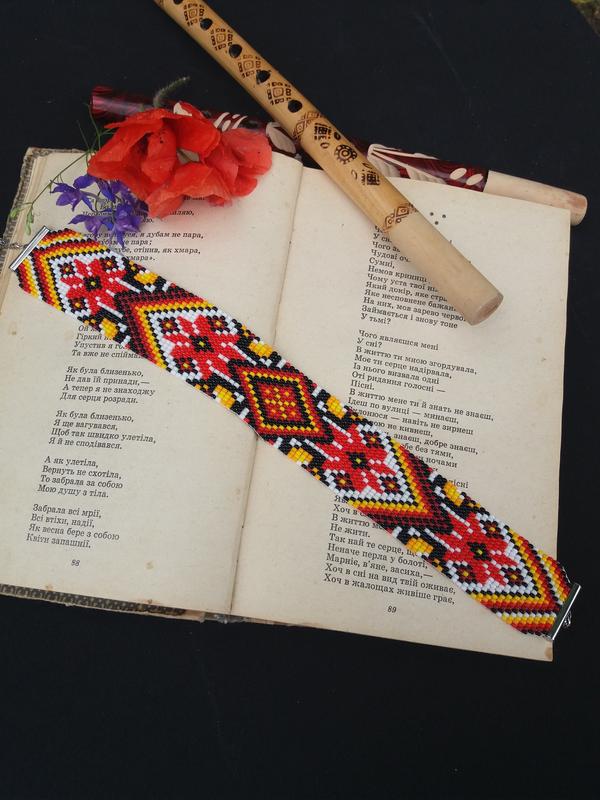 юся, я дубам не пара,
дубам не пара;
дубе, отінив, як хмара,
хмара».
Ой
Гіркий
Упустив я го
Та вже не спійма
Як була близенько,
Не дав їй принади,—
А тепер я не знаходжу
Для серця розради.
Як була близенько,
Я ще вагувався,
Щоб так швидко улетіла,
Я й не сподівався.
А як улетіла,
Вернуть не схотіла,
То забрала за собою
Мою душу з тіла.
Забрала всі мрії,
Всі втіхи, надії,
Як весна бере з собою
Квіти запашнії.
88
Чого
Чудові оч
Сумні,
Немов криниці
Чому уста твої ні
Який докір, яке стра
Яке несповнене бажан
На них, мов зарево черво
Займається і знову тоне
У тьмі?
Чого являєшся мені
У сні?
В життю ти мною згордувала,
Моє ти серце надірвала,
Із нього визвала одні
Оті ридання голосні —
Пісні.
В життю мене ти й знать не знаєш,
Ідеш по вулиці — минаєш,
Вклонюся — навіть не зирнеш
кивнеш,
знаєш, знаєш, добре знаєш,
без тями,
ночами
пісні
Хоч в
В життю м
Не жити.
Так най те серце, що
Неначе перла у болоті,
Марніє, в'яне, засиха,—
Хоч в сні на вид твій оживає,
Хоч в жалощах живіше грає,
89